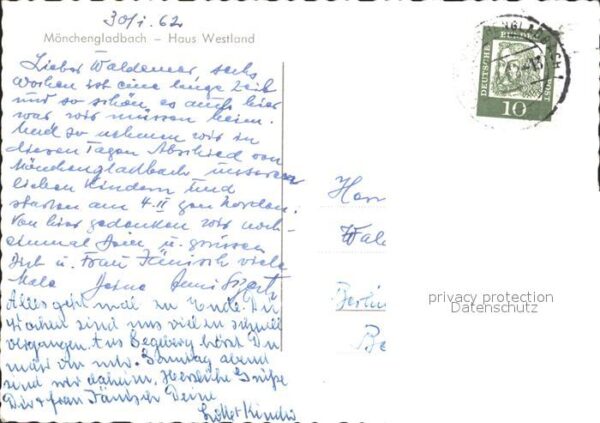 30/1. 62
Mönchengladbach – Haus Westland
Lieber Waldemar, sechs
Wochen ist eine lange Zeit
und so schön es auch hier
war wir müssen heim.
Und so nehmen wir in
diesen Tagen Abschied von
Mönchengladbach unseren
lieben Kindern und
starten am 4. II gen Norden.
Von hier gedenken wir noch
einmal Dein u. grüssen
Dich u. Frau Jänisch viele
Male Deine
Alles geht mal zu Ende. Die
Wochen sind uns viel zu schnell
vergangen. Aus Segeberg hörst Du
mehr. Sonntag abend
sind wir daheim. Herzliche Grüße
Dir + Frau Jänisch Deine
Lotte + Kinder
Herr
Wal
Berlin
Be
DEUTSCHE BUNDESPOST
10
privacy protection
Datenschutz